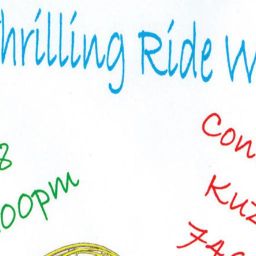 hrilling Ride W
8
:00pm
Con
Kuz
740